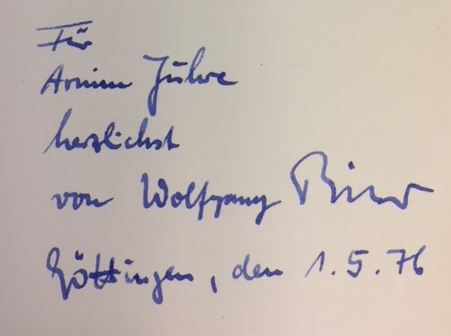 Für
Armin Juhre
herzlichst
von Wolfgang Bittner
Göttingen, den 1.5.76